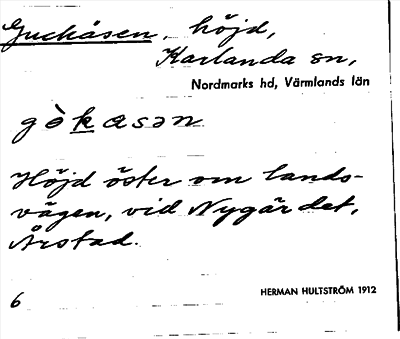 Guckåsen, höjd,
Karlanda sn,
Nordmarks hd, Värmlands län
gòkasən
Höjd öster om lands-
vägen, vid Nygärdet,
Årstad.
HERMAN HULTSTRÖM 1912
6